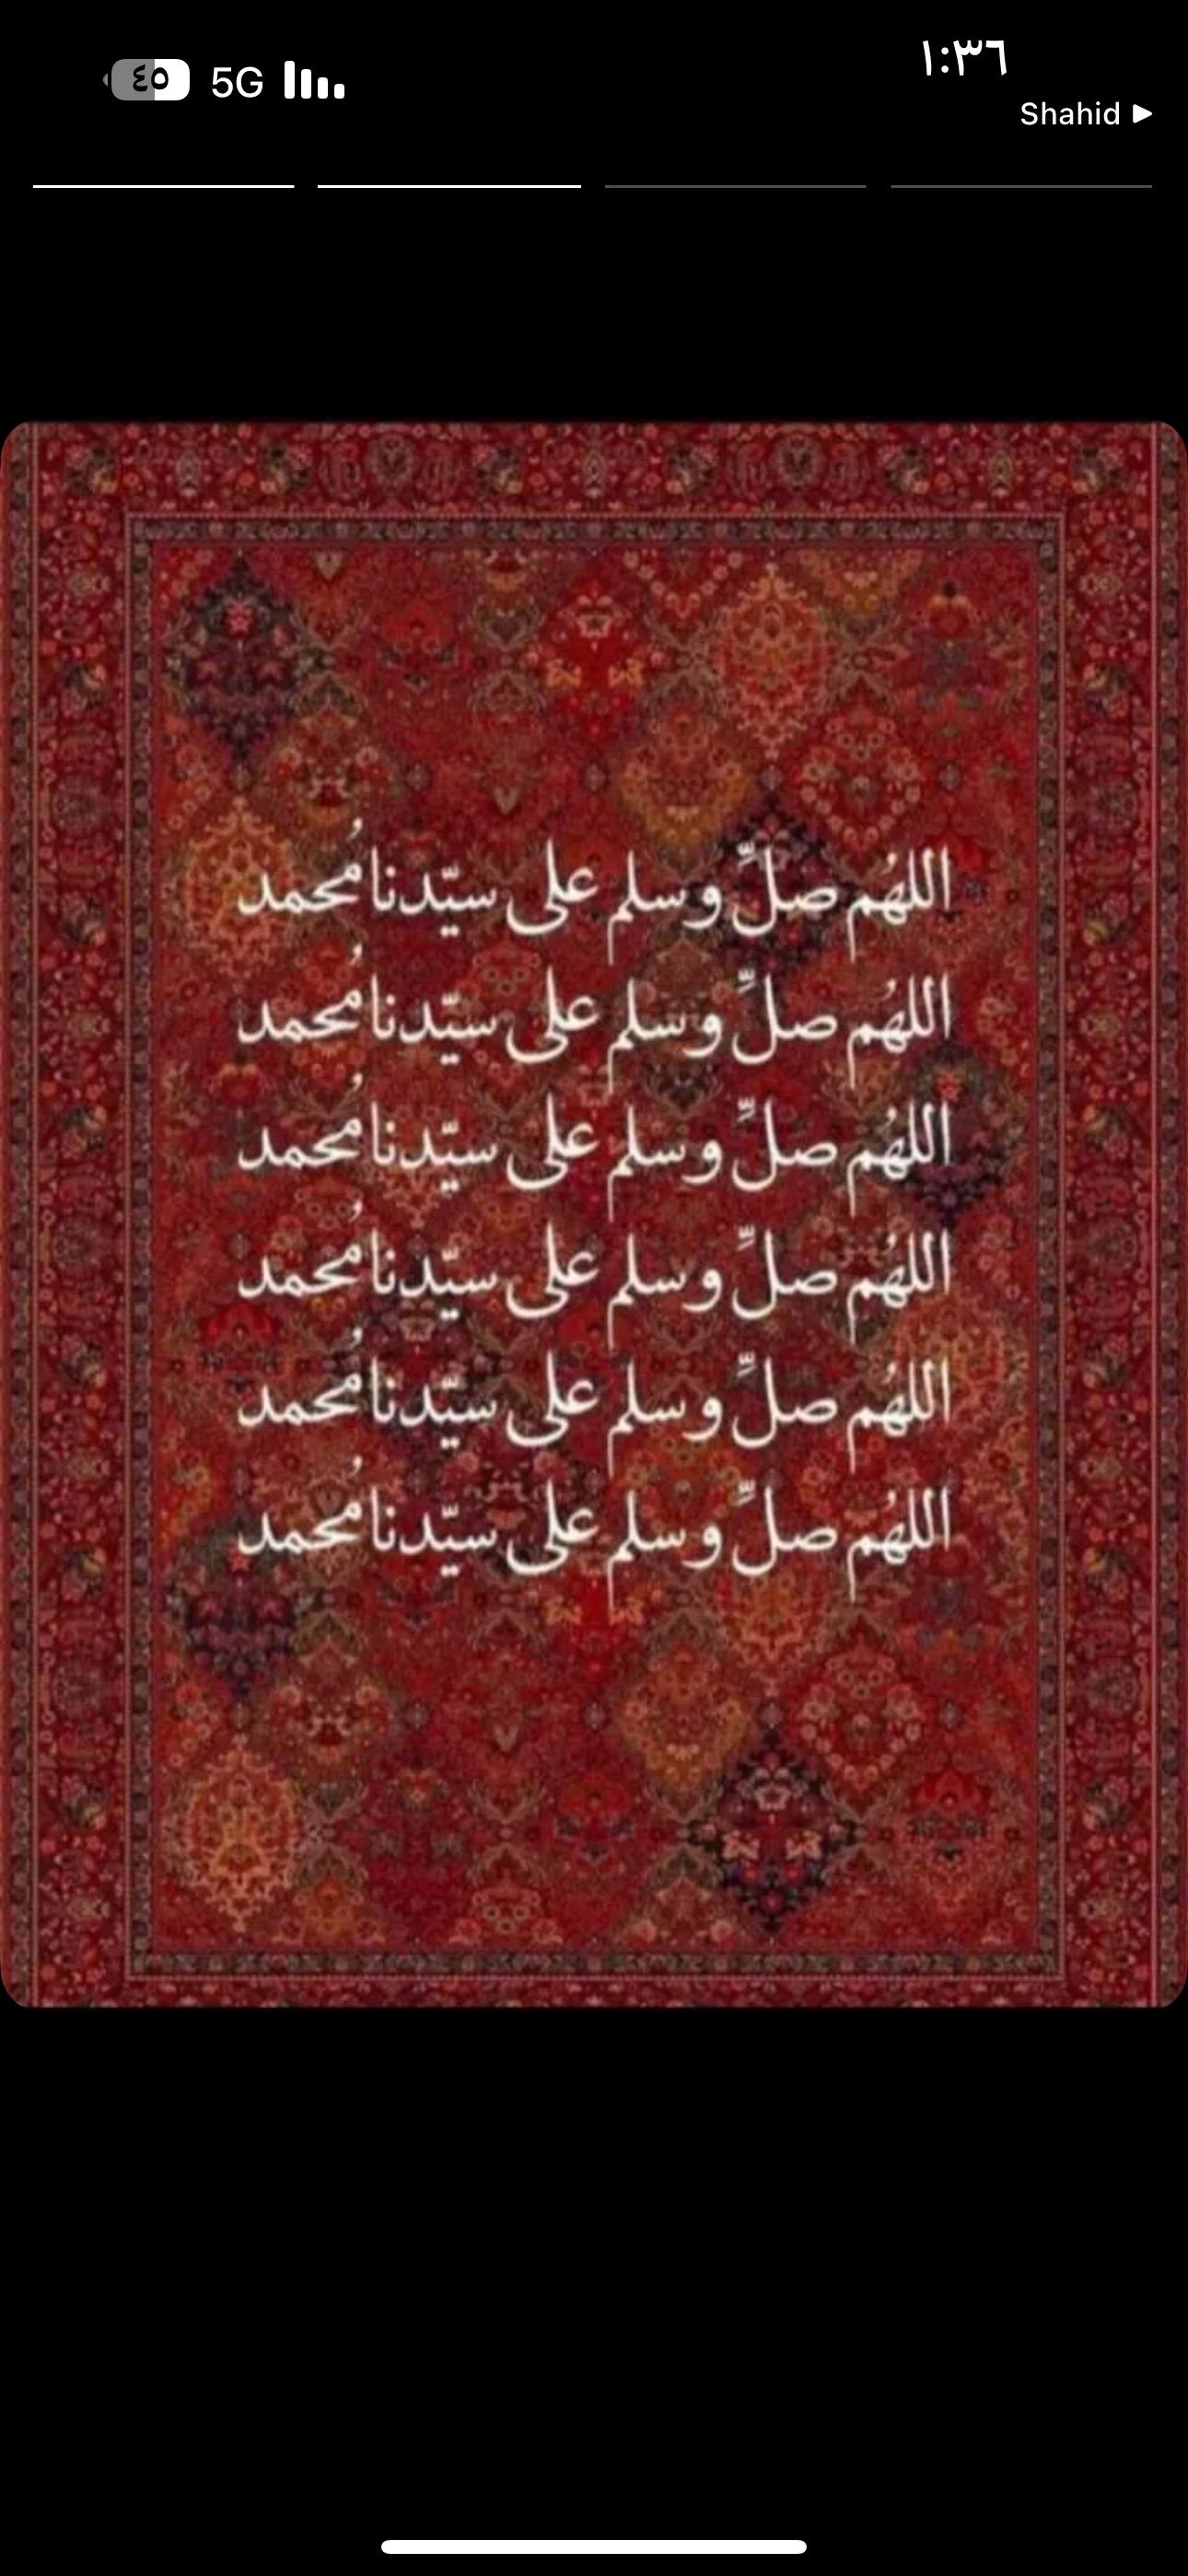 ١:٣٦
٤٥ 5G
Shahid
اللهُم صلِّ وسلم على سيّدنا مُحمد
اللهُم صلِّ وسلم على سيّدنا مُحمد
اللهُم صلِّ وسلم على سيّدنا مُحمد
اللهُم صلِّ وسلم على سيّدنا مُحمد
اللهُم صلِّ وسلم على سيّدنا مُحمد
اللهُم صلِّ وسلم على سيّدنا مُحمد